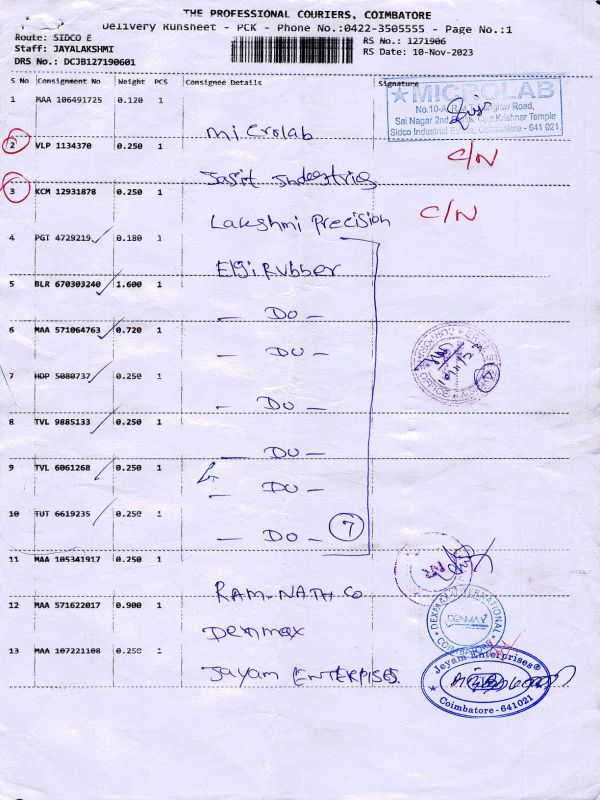 THE PROFESSIONAL COURIERS, COIMBATORE
Delivery Runsheet - PCK - Phone No.:0422-3505555 - Page No.:1
Route: SIDCO E
Staff: JAYALAKSHMI
DRS No.: DCJB127190601
RS No.: 1271906
RS Date: 10-Nov-2023
S No Consignment No Weight PCS Consignee Details Signature
1 MAA 106491725 0.120 1 Microlab
★MICROLAB
No.10-A, Road,
Sai Nagar 2nd Opp Krishnar Temple
Sidco Industrial Estate, Coimbatore - 641 021.
2 VLP 1134370 0.250 1 C/N
3 KCM 12931878 0.250 1 Lakshmi Precision C/N
4 PGT 4729219 0.180 1 Elgi Rubber
5 BLR 670303240 1.600 1 - Do -
6 MAA 571064763 0.720 1 - Do -
7 HDP 5080737 0.250 1 - Do -
8 TVL 9885133 0.250 1 - Do -
9 TVL 6061268 0.250 1 - Do -
10 TUT 6619235 0.250 1 - Do - 7
11 MAA 105341917 0.250 1 RAM-NATH Co
12 MAA 571622017 0.900 1 Denmax
DENMAX
COIMBATORE
13 MAA 107221108 0.250 1 Jayam ENTERPRISES.
Jeyam Enterprises®
Coimbatore - 641021